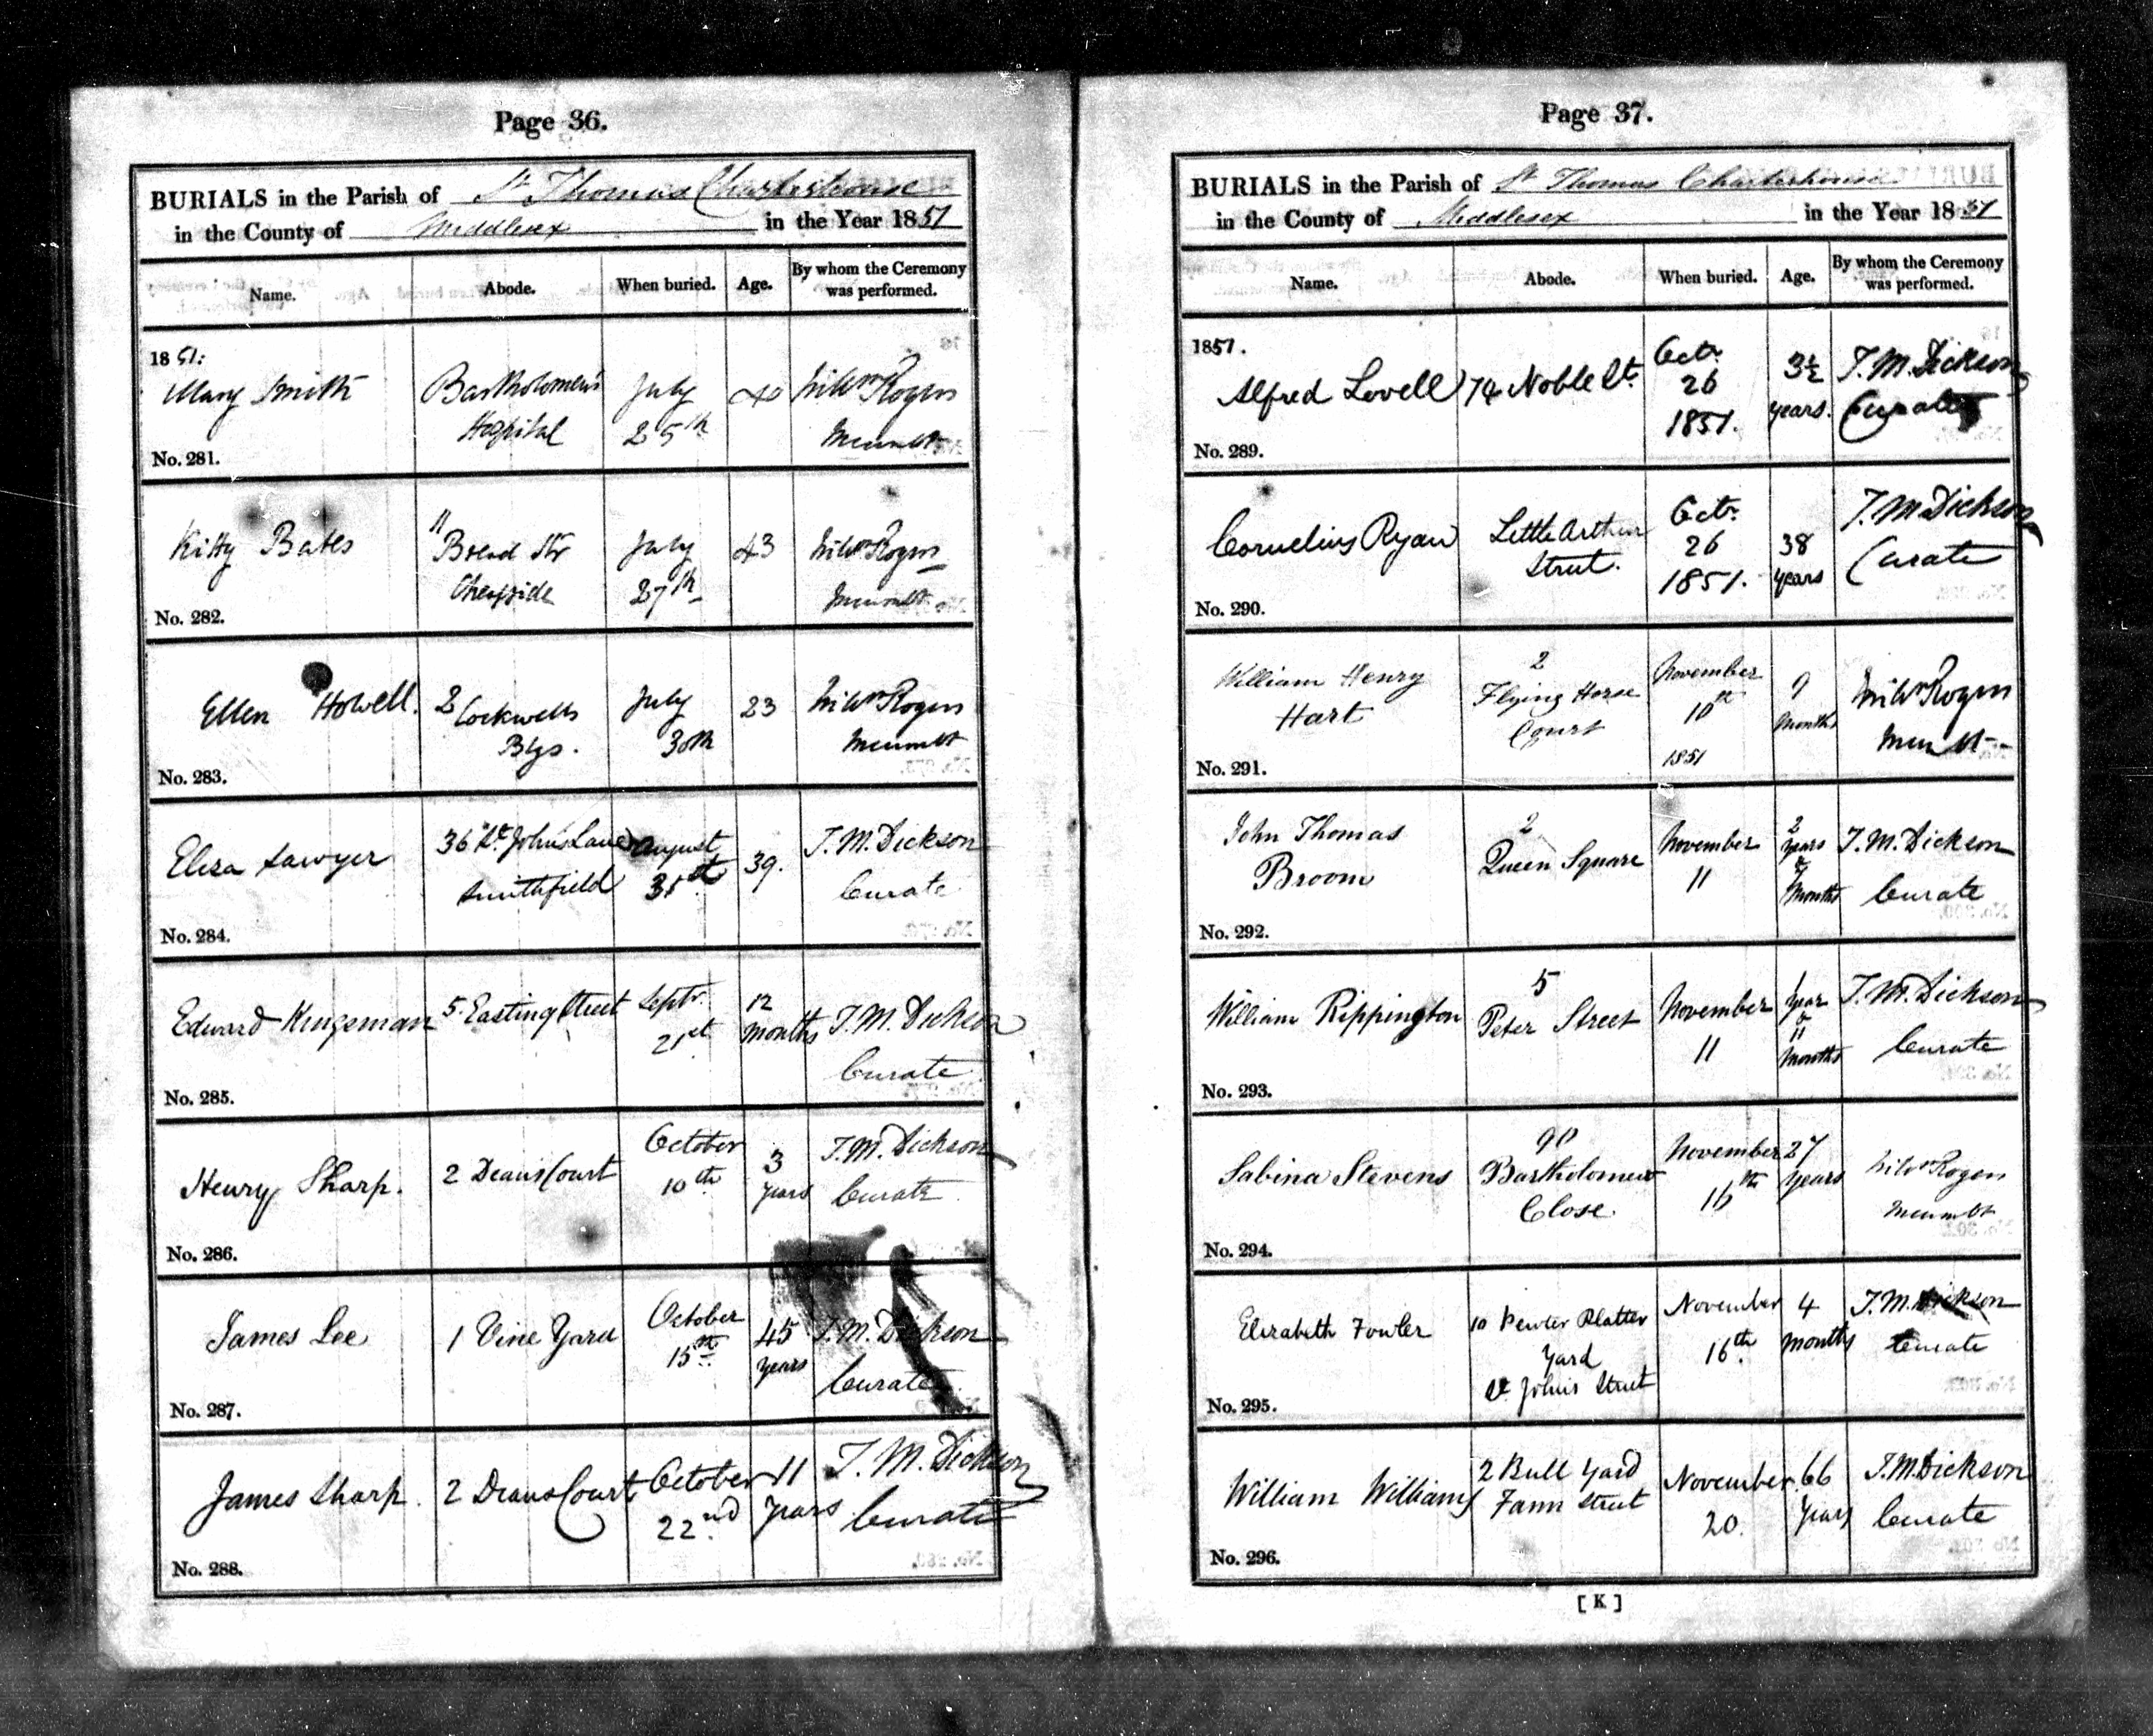 Page 36.
BURIALS in the Parish of St Thomas Charterhouse
in the County of Middlesex in the Year 1851
Name. Abode. When buried. Age. By whom the Ceremony was performed.
1851:
Mary Smith Bartholomew's July 40 Willm Rogers
Hospital 25th
No. 281.
Kitty Bates 11 Bread Str July 43 Willm Rogers
Cheapside 27th
No. 282.
Ellen Howell. 2 Cockwells July 23 Willm Rogers
Blgs. 30th
No. 283.
Eliza Sawyer 36 St. Johns Lane August 39. T. M. Dickson
Smithfield 31st Curate
No. 284.
Edward 5 Street Septr. 12 T. M. Dickson
21st months Curate
No. 285.
Henry Sharp. 2 Deans Court October 3 T. M. Dickson
10th years Curate
No. 286.
James Lee 1 Vine Yard October 45 T. M. Dickson
15th years Curate
No. 287.
James Sharp. 2 Deans Court October 11 T. M. Dickson
22nd years Curate
No. 288.
Page 37.
BURIALS in the Parish of St Thomas Charterhouse
in the County of Middlesex in the Year 1851
Name. Abode. When buried. Age. By whom the Ceremony was performed.
1851.
Alfred Lovell 74 Noble St. Octr. 26 1851. 3½ years. T. M. Dickson
Curate
No. 289.
Cornelius Ryan Little Arthur Octr. 26 1851. 38 years T. M. Dickson
Street. Curate
No. 290.
William Henry 2 Flying Horse November Willm Rogers
Hart Court 10th 1851 months
No. 291.
John Thomas 2 November 2 years & T. M. Dickson
Broom Queen Square 11 months Curate
No. 292.
William Rippington 5 Peter Street November 1 year & T. M. Dickson
11 11 months Curate
No. 293.
Sabina Stevens 90 Bartholomew November 27 Willm Rogers
Close. years
No. 294.
Elizabeth Fowler 10 Pewter Platter November 4 T. M. Dickson
Yard 16th months Curate
St. Johns Street
No. 295.
William Williams 2 Bull Yard November 66 T. M. Dickson
Fann Street 20. years Curate
No. 296.
[ K ]